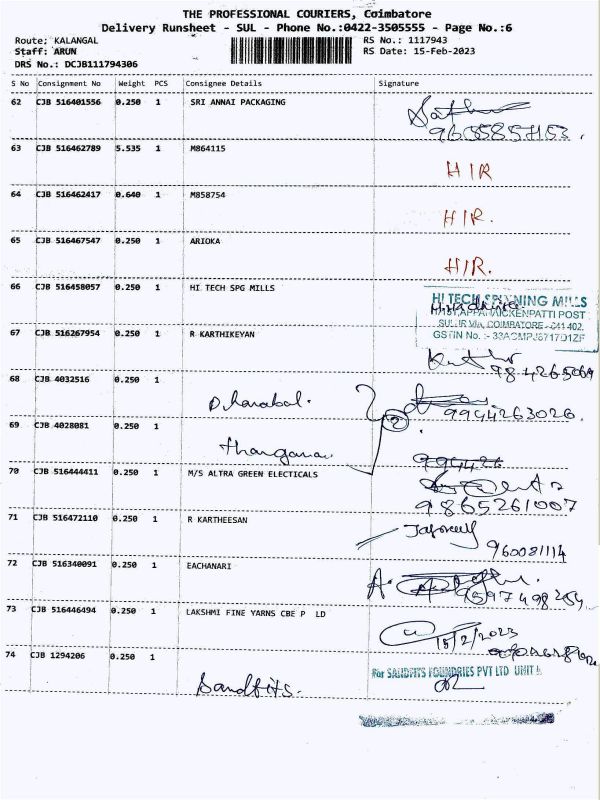 THE PROFESSIONAL COURIERS, Coimbatore
Delivery Runsheet - SUL - Phone No.:0422-3505555 - Page No.:6
Route: KALANGAL
Staff: ARUN
DRS No.: DCJB111794306
RS No.: 1117943
RS Date: 15-Feb-2023
S No Consignment No Weight PCS Consignee Details Signature
62 CJB 516401556 0.250 1 SRI ANNAI PACKAGING
63 CJB 516462789 5.535 1 M864115 HIR
64 CJB 516462417 0.640 1 M858754 HIR.
65 CJB 516467547 0.250 1 ARIOKA HIR.
66 CJB 516458057 0.250 1 HI TECH SPG MILLS
HI TECH SPINNING MILLS
POST
COIMBATORE - 641 402.
GSTIN No. :-
67 CJB 516267954 0.250 1 R KARTHIKEYAN
68 CJB 4032516 0.250 1 Dhanabal. 9944263026.
69 CJB 4028081 0.250 1
70 CJB 516444411 0.250 1 M/S ALTRA GREEN ELECTICALS
9865261007
71 CJB 516472110 0.250 1 R KARTHEESAN
960081114
72 CJB 516340091 0.250 1 EACHANARI
73 CJB 516446494 0.250 1 LAKSHMI FINE YARNS CBE P LD
15/2/2023
74 CJB 1294206 0.250 1 Sandfits.
For SANDFITS FOUNDRIES PVT LTD UNIT